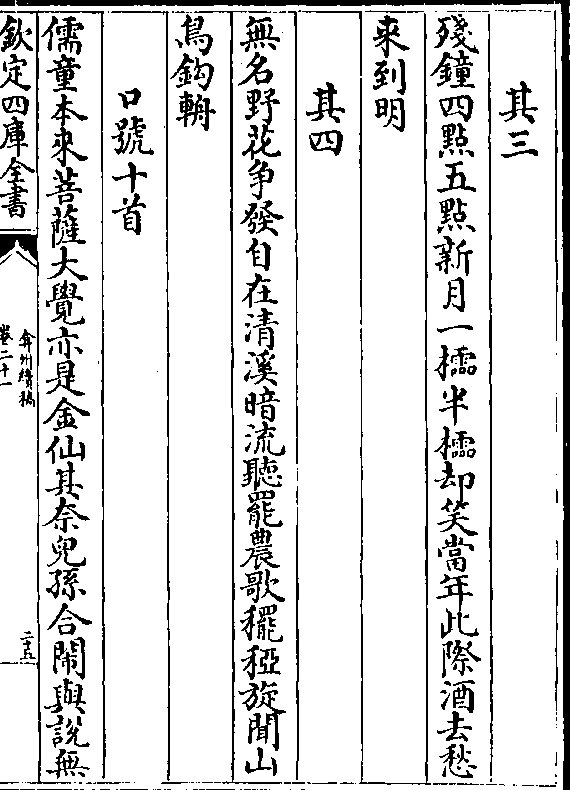 其三
殘鐘四點五點新月一檽半檽却笑當年此際酒去愁
來到明
其四
無名野花争發自在清溪暗流聽罷農歌䆉稏旋聞山
鳥鈎輈
口號十首
儒童本來菩薩大覺亦是金仙其奈兒孫合鬧與說無
欽定四庫全書
弇州續稿
卷二十一
二十五